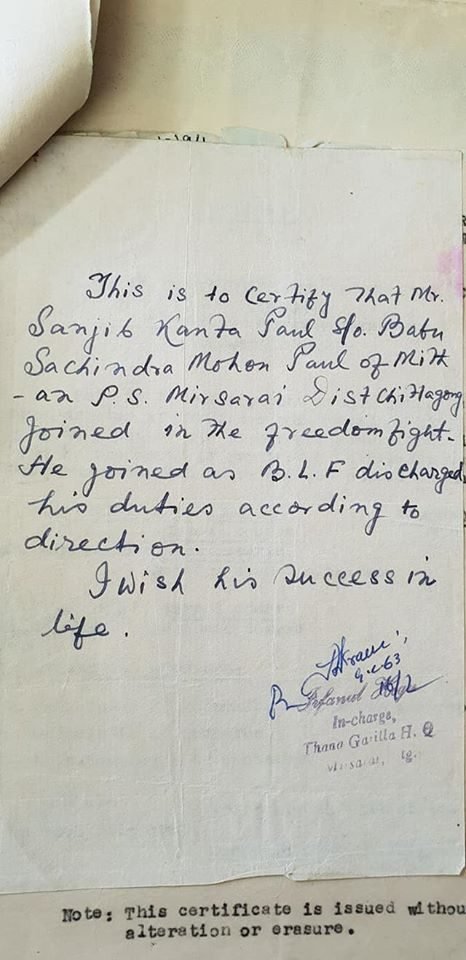 This is to certify That Mr.
Sanjib Kanta Paul S/o. Babu
Sachindra Mohon Paul of Mitt
-an P.S. Mirsarai Dist Chittagong
Joined in the freedom fight.
He joined as B.L.F discharged
his duties according to
direction.
I wish his success in
life.
In-charge,
Thana Garilla H.Q
Note: This certificate is issued withou
alteration or erasure.